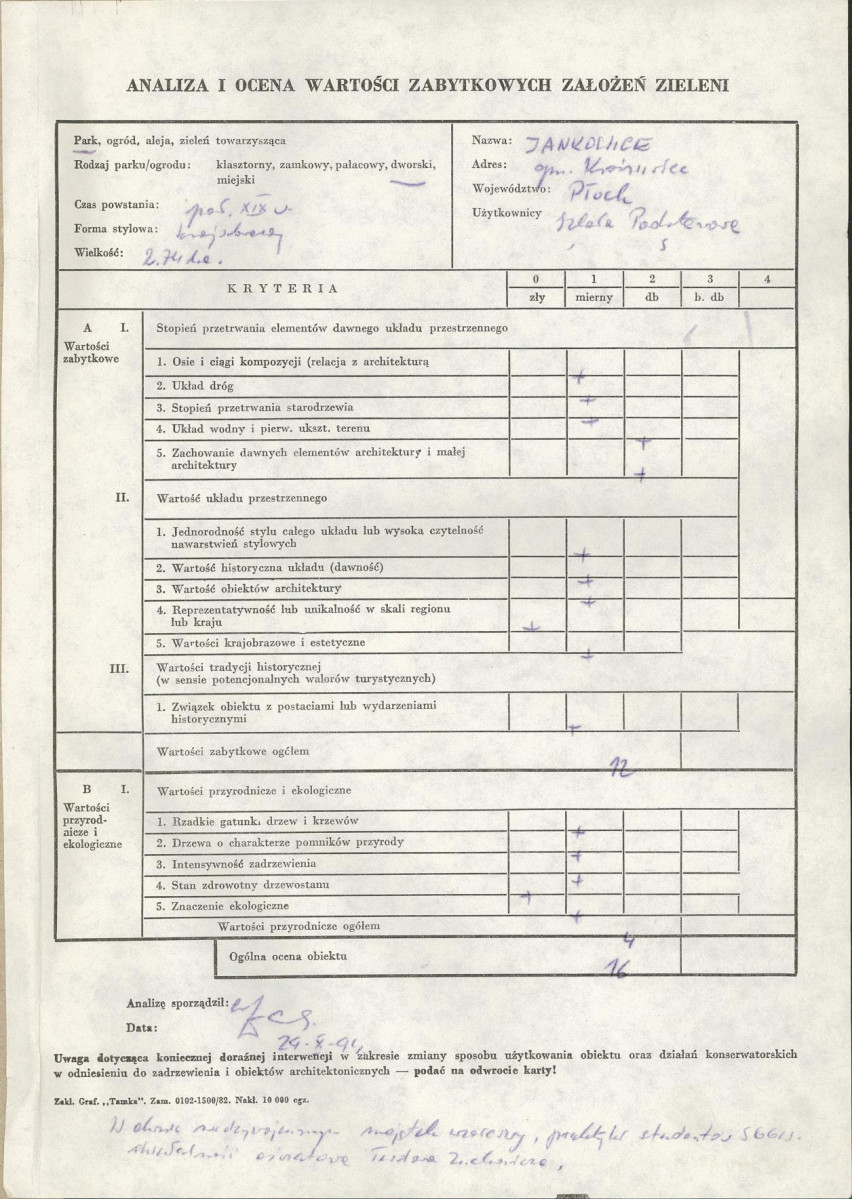 ANALIZA I OCENA WARTOŚCI ZABYTKOWYCH ZAŁOŻEŃ ZIELENI
Park, ogród, aleja, zieleń towarzysząca
Rodzaj parku/ogrodu: klasztorny, zamkowy, pałacowy, dworski,
miejski
Czas powstania: poł. XIX w
Forma stylowa: krajobrazowy
Wielkość: 2.74 ha.
Nazwa: JANKOWICE
Adres: gm. Krośniewice
Województwo: Płock
Użytkownicy Szkoła Podstawowa
KRYTERIA
0 1 2 3 4
zły mierny db b. db
A I. Stopień przetrwania elementów dawnego układu przestrzennego
Wartości
zabytkowe
1. Osie i ciągi kompozycji (relacja z architekturą +
2. Układ dróg +
3. Stopień przetrwania starodrzewia +
4. Układ wodny i pierw. ukszt. terenu +
5. Zachowanie dawnych elementów architektury i małej
architektury +
II. Wartość układu przestrzennego
1. Jednorodność stylu całego układu lub wysoka czytelność
nawarstwień stylowych +
2. Wartość historyczna układu (dawność) +
3. Wartość obiektów architektury +
4. Reprezentatywność lub unikalność w skali regionu
lub kraju +
5. Wartości krajobrazowe i estetyczne +
III. Wartości tradycji historycznej
(w sensie potencjonalnych walorów turystycznych)
1. Związek obiektu z postaciami lub wydarzeniami
historycznymi +
Wartości zabytkowe ogółem 12
B I. Wartości przyrodnicze i ekologiczne
Wartości
przyrod-
nicze i
ekologiczne
1. Rzadkie gatunki drzew i krzewów +
2. Drzewa o charakterze pomników przyrody +
3. Intensywność zadrzewienia +
4. Stan zdrowotny drzewostanu +
5. Znaczenie ekologiczne +
Wartości przyrodnicze ogółem 4
Ogólna ocena obiektu 16
Analizę sporządził:
Data: 29-X-91
Uwaga dotycząca koniecznej doraźnej interwencji w zakresie zmiany sposobu użytkowania obiektu oraz działań konserwatorskich
w odniesieniu do zadrzewienia i obiektów architektonicznych — podać na odwrocie karty!
Zakł. Graf. „Tamka". Zam. 0102-1500/82. Nakł. 10 000 egz.
W okresie międzywojennym majątek wzorcowy, praktyki studentów SGGW.
działalność oświatowa